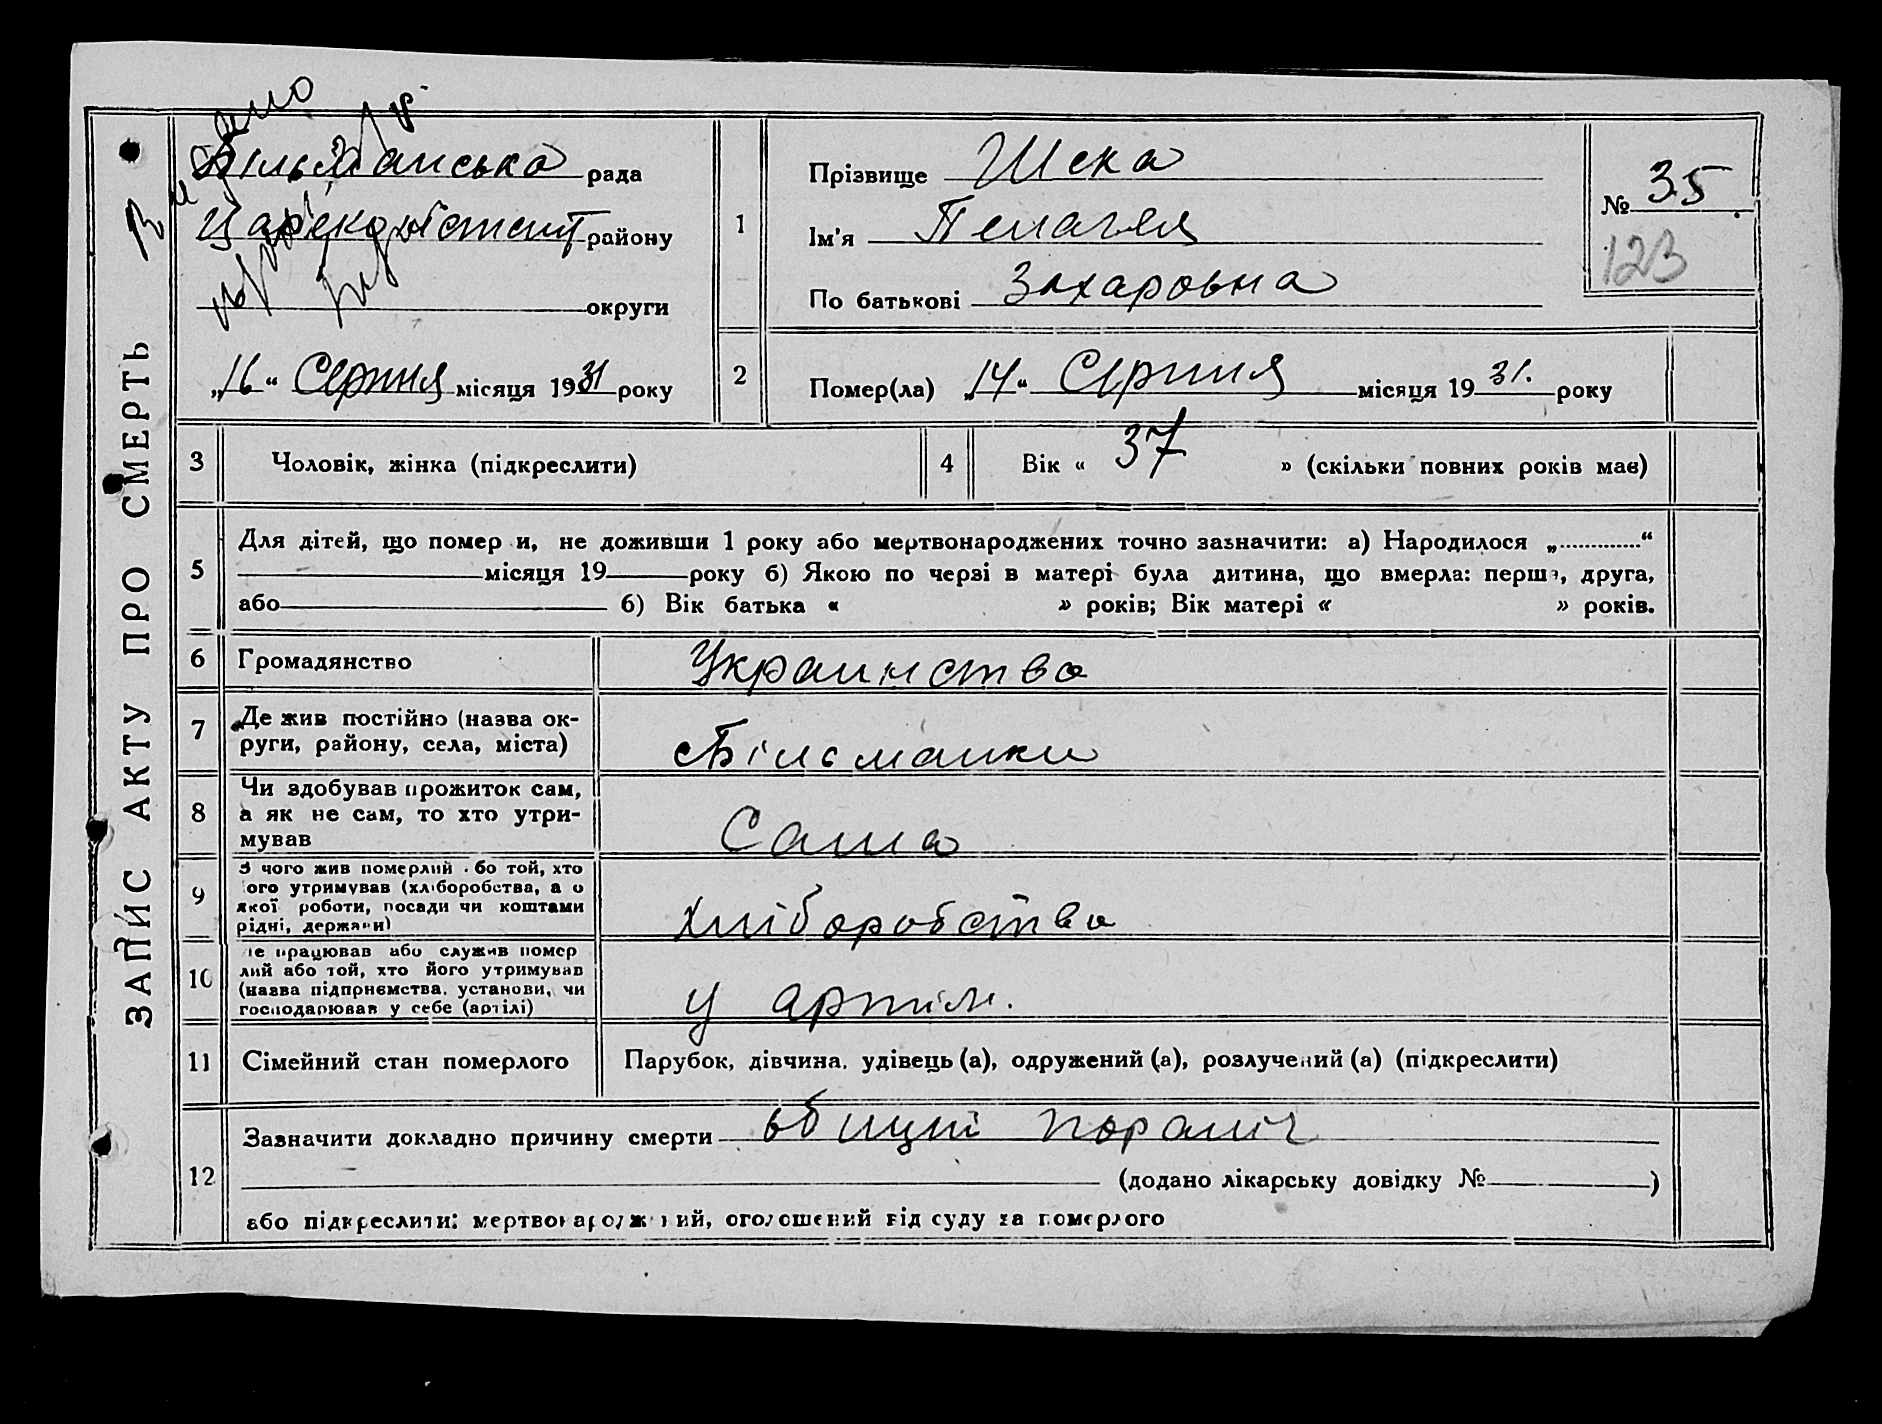 ЗАПИС АКТУ ПРО СМЕРТЬ
Більманська рада
району
округи
„16“ Серпня місяця 1931 року
1
Прізвище Шека
Ім'я Пелагея
По батькові Захаровна
№ 35
123
2
Помер(ла) „14“ Серпня місяця 1931. року
3 Чоловік, жінка (підкреслити)
4 Вік « 37 » (скільки повних років має)
5
Для дітей, що помер и, не доживши 1 року або мертвонароджених точно зазначити: а) Народилося „.............“
місяця 19 року б) Якою по черзі в матері була дитина, що вмерла: перша, друга,
або б) Вік батька « » років; Вік матері « » років.
6 Громадянство Украинства
7 Де жив постійно (назва ок-
руги, району, села, міста) Більманки
8 Чи здобував прожиток сам,
а як не сам, то хто утри-
мував Сама
9 З чого жив померлий бо той, хто
ого утримував (хліборобства, а о
якої роботи, посади чи коштами
рідні, держави) хліборобства
10 е працював або служив помер
лий або той, хто його утримував
(назва підприємства, установи, чи
господарював у себе (артілі) у артілі.
11 Сімейний стан померлого Парубок, дівчина, удівець (а), одружений (а), розлучений (а) (підкреслити)
12
Зазначити докладно причину смерти параліч
(додано лікарську довідку № )
або підкреслити: мертвонароджений, оголошений від суду за померлого